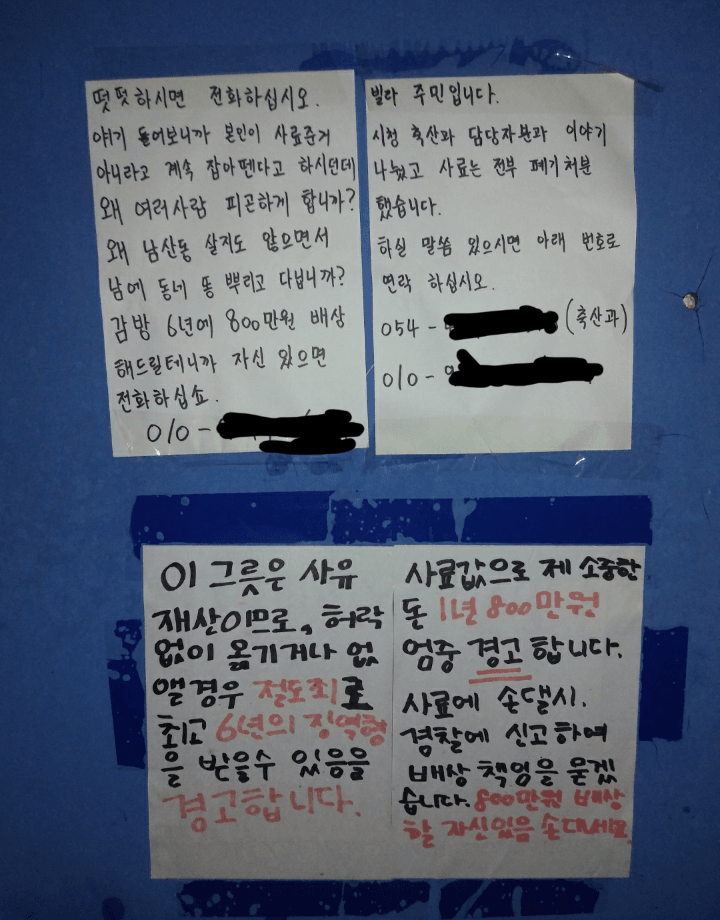 떳떳하시면 전화하십시오.
얘기 들어보니까 본인이 사료준거
아니라고 계속 잡아뗀다고 하시던데
왜 여러사람 피곤하게 합니까?
왜 남산동 살지도 않으면서
남에 동네 똥 뿌리고 다닙니까?
감방 6년에 800만원 배상
해드릴테니까 자신 있으면
전화하십쇼.
010-
빌라 주민입니다.
시청 축산과 담당자분과 이야기
나눴고 사료는 전부 폐기처분
했습니다.
하실 말씀 있으시면 아래 번호로
연락 하십시오.
054- (축산과)
010-
이 그릇은 사유
재산이므로, 허락
없이 옮기거나 없
앨경우 절도죄로
최고 6년의 징역형
을 받을수 있음을
경고합니다.
사료값으로 제 소중한
돈 1년 800만원
엄중 경고 합니다.
사료에 손댈시.
경찰에 신고하여
배상 책임을 묻겠
습니다. 800만원 배상
할 자신있음 손대세요.